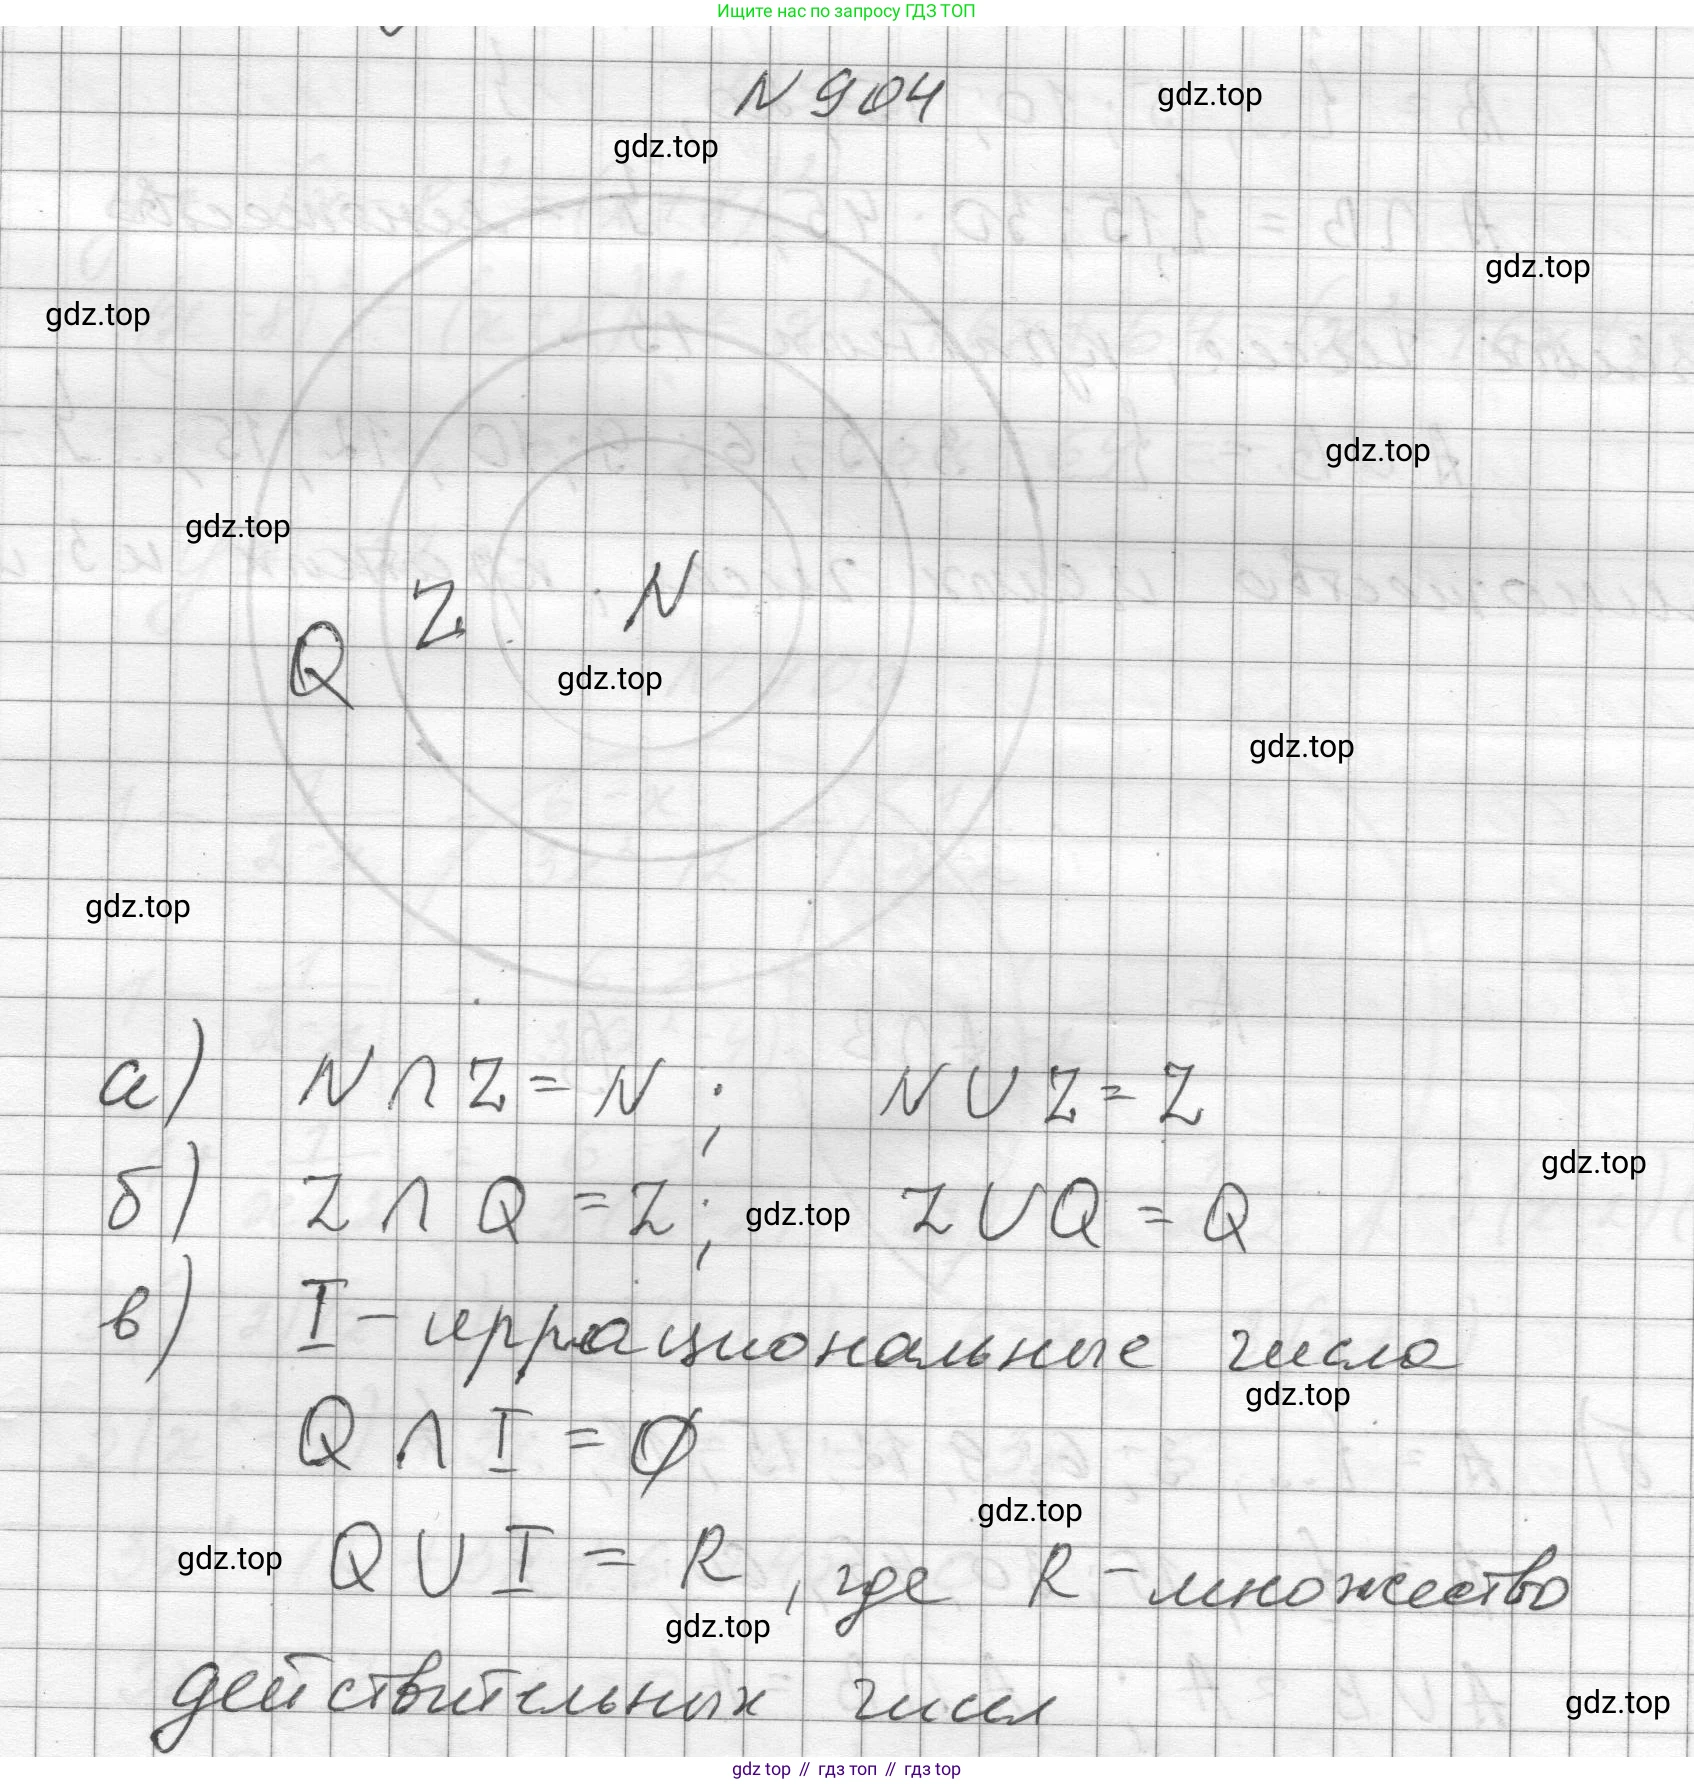 Ищите нас по запросу ГДЗ ТОП
N 904
gdz.top
gdz.top
gdz.top
gdz.top
gdz.top
gdz.top
Q Z N
gdz.top
gdz.top
gdz.top
а) N ∩ Z = N ; N ∪ Z = Z
gdz.top
б) Z ∩ Q = Z ; Z ∪ Q = Q
gdz.top
в) I - иррациональные числа
gdz.top
Q ∩ I = ∅
gdz.top
Q ∪ I = R , где R - множество
gdz.top
gdz.top
действительных чисел
gdz.top
gdz top // гдз топ // гдз top